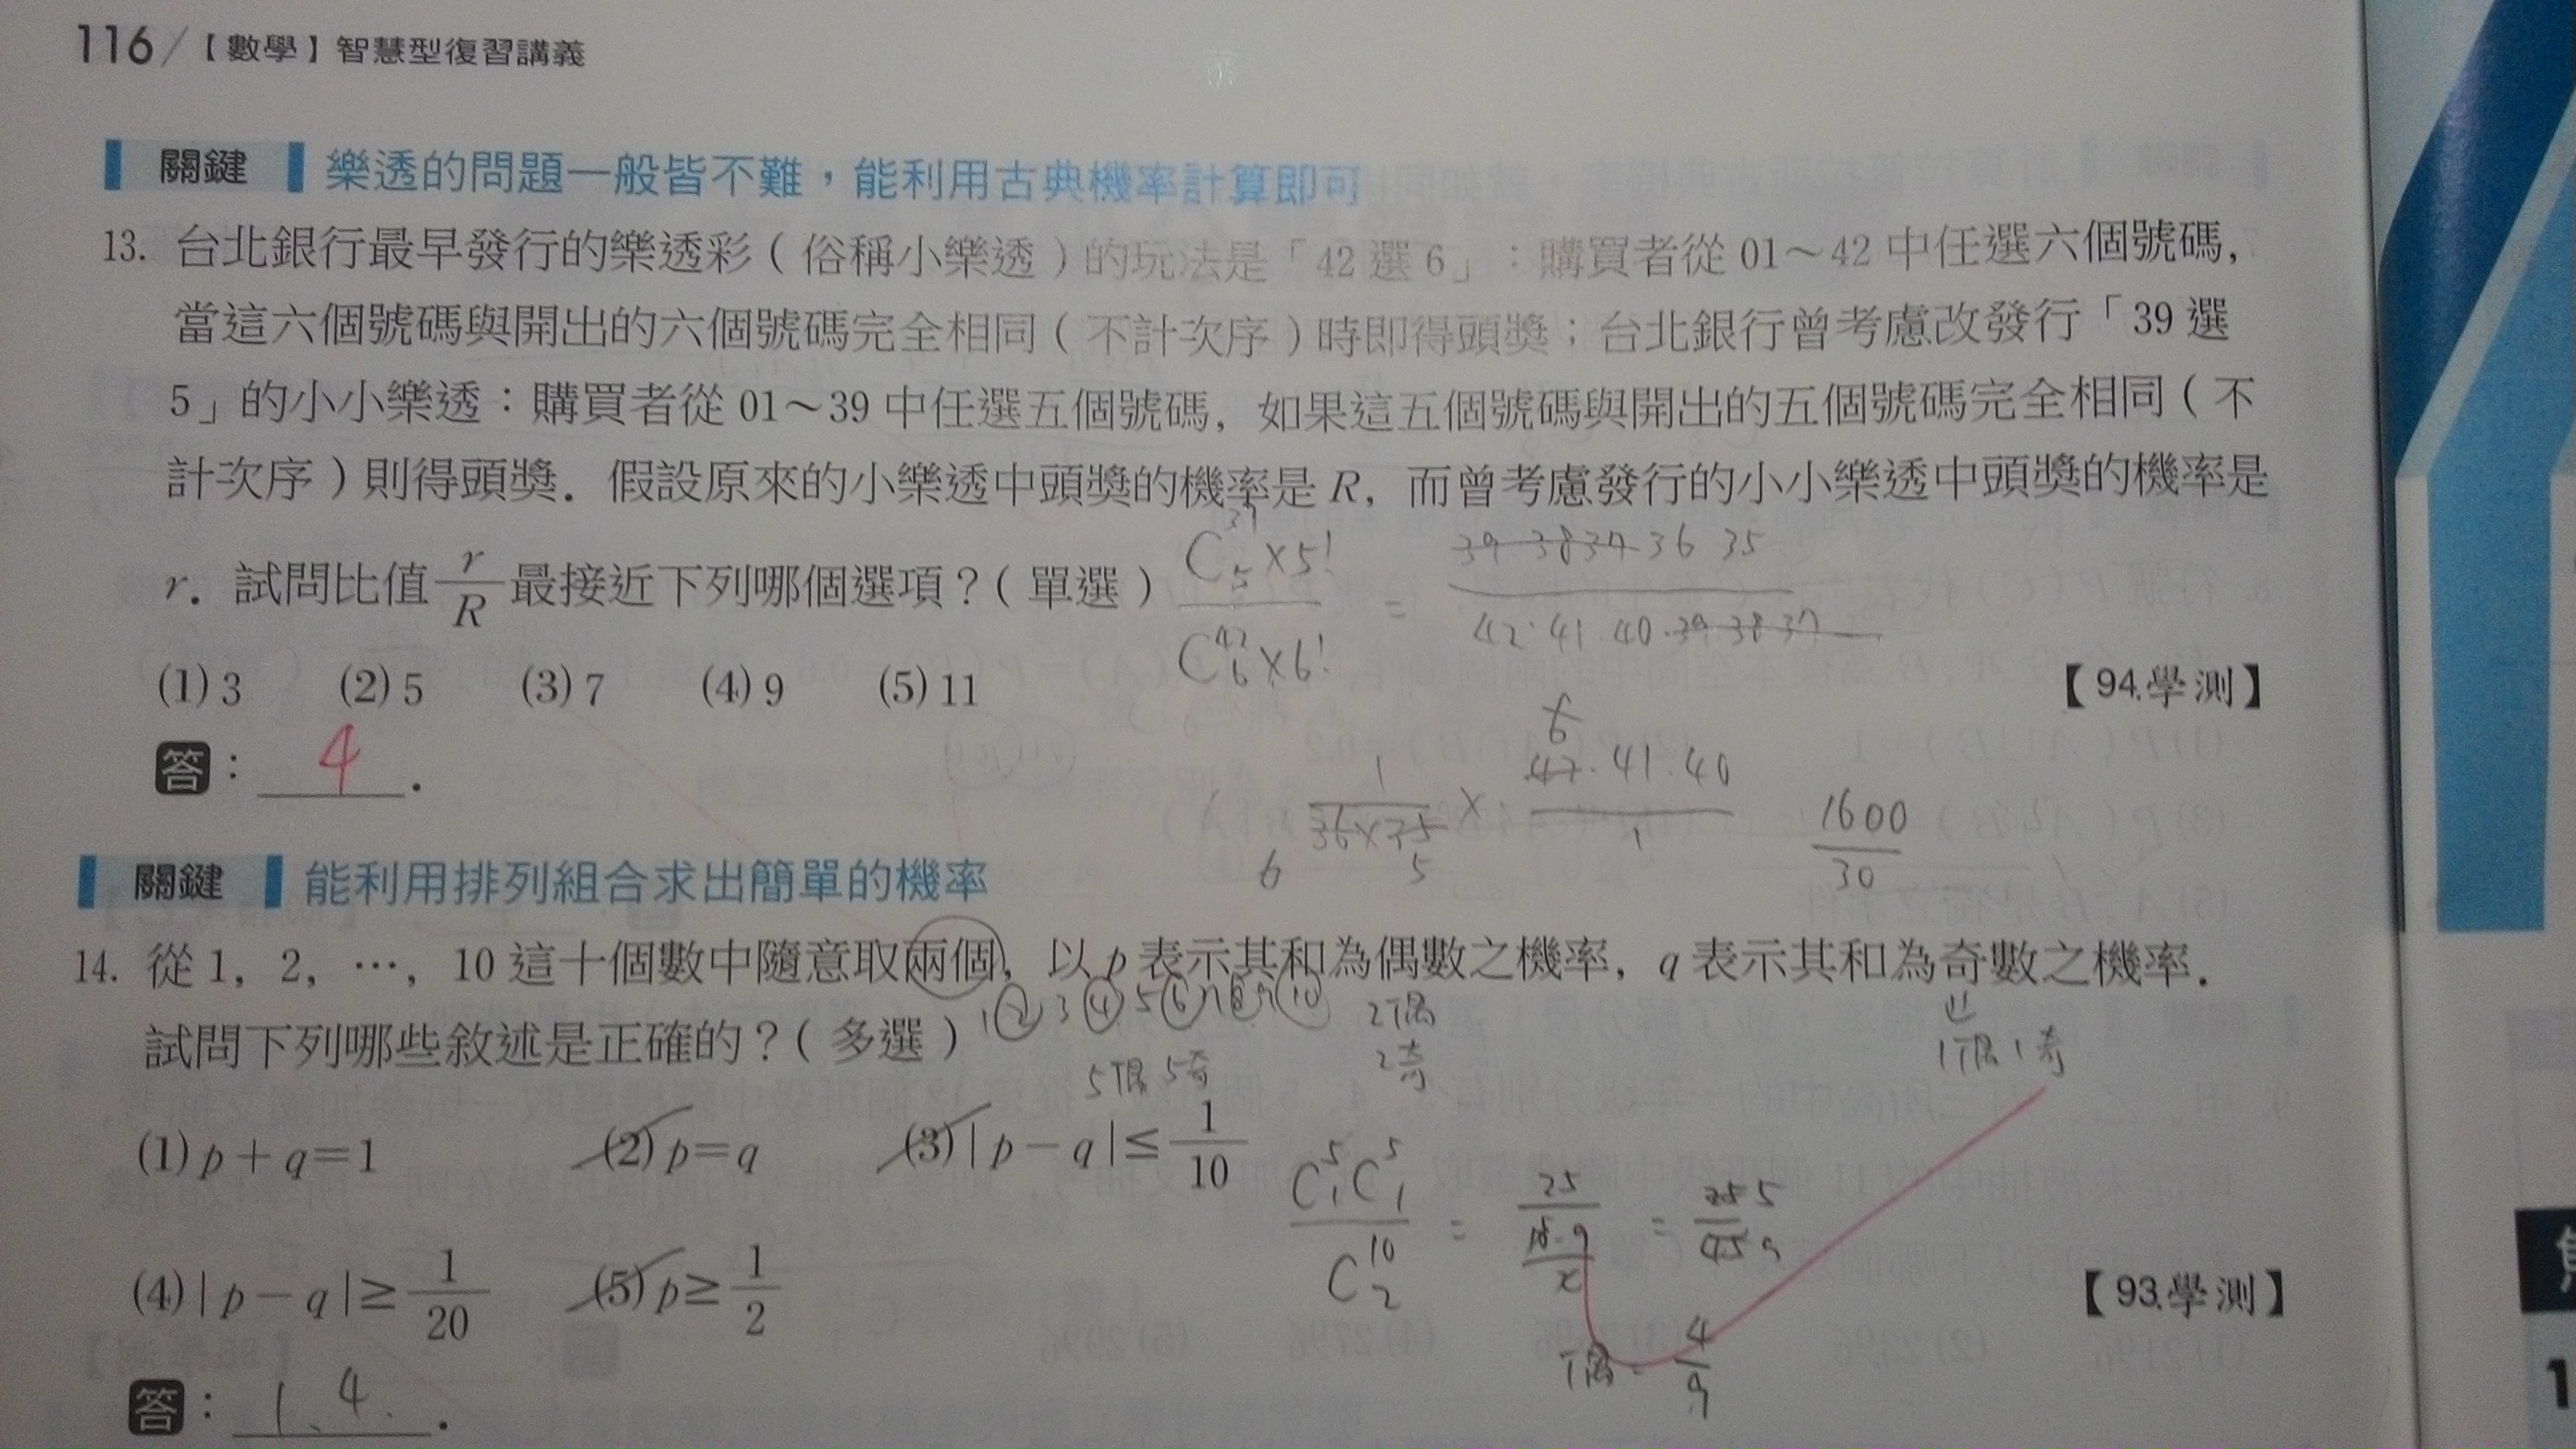 116/【數學】智慧型復習講義
關鍵 樂透的問題一般皆不難，能利用古典機率計算即可
13. 台北銀行最早發行的樂透彩（俗稱小樂透）的玩法是「42 選 6」：購買者從 01～42 中任選六個號碼，
當這六個號碼與開出的六個號碼完全相同（不計次序）時即得頭獎；台北銀行曾考慮改發行「39 選
5」的小小樂透：購買者從 01～39 中任選五個號碼，如果這五個號碼與開出的五個號碼完全相同（不
計次序）則得頭獎．假設原來的小樂透中頭獎的機率是 R，而曾考慮發行的小小樂透中頭獎的機率是
r．試問比值 r/R 最接近下列哪個選項？（單選）
C39 5 ×5! / C42 6 ×6! = 39 38 37 36 35 / 42·41·40·39·38·37
(1) 3 (2) 5 (3) 7 (4) 9 (5) 11 【94.學測】
答：4．
1 / 36×35 × 42·41·40 / 1
6 5
1600 / 30
關鍵 能利用排列組合求出簡單的機率
14. 從 1，2，…，10 這十個數中隨意取兩個，以 p 表示其和為偶數之機率，q 表示其和為奇數之機率．
1 2 3 4 5 6 7 8 9 10 2偶
試問下列哪些敘述是正確的？（多選）
5偶 5奇 2奇 1偶1奇
(1) p＋q＝1 (2) p＝q (3) |p－q|≤ 1/10
C5 1 C5 1 / C10 2 = 25 / 10·9 / 2 = 25 5 / 45 9
(4) |p－q|≥ 1/20 (5) p≥ 1/2 【93.學測】
偶 = 4/9
答：1、4．